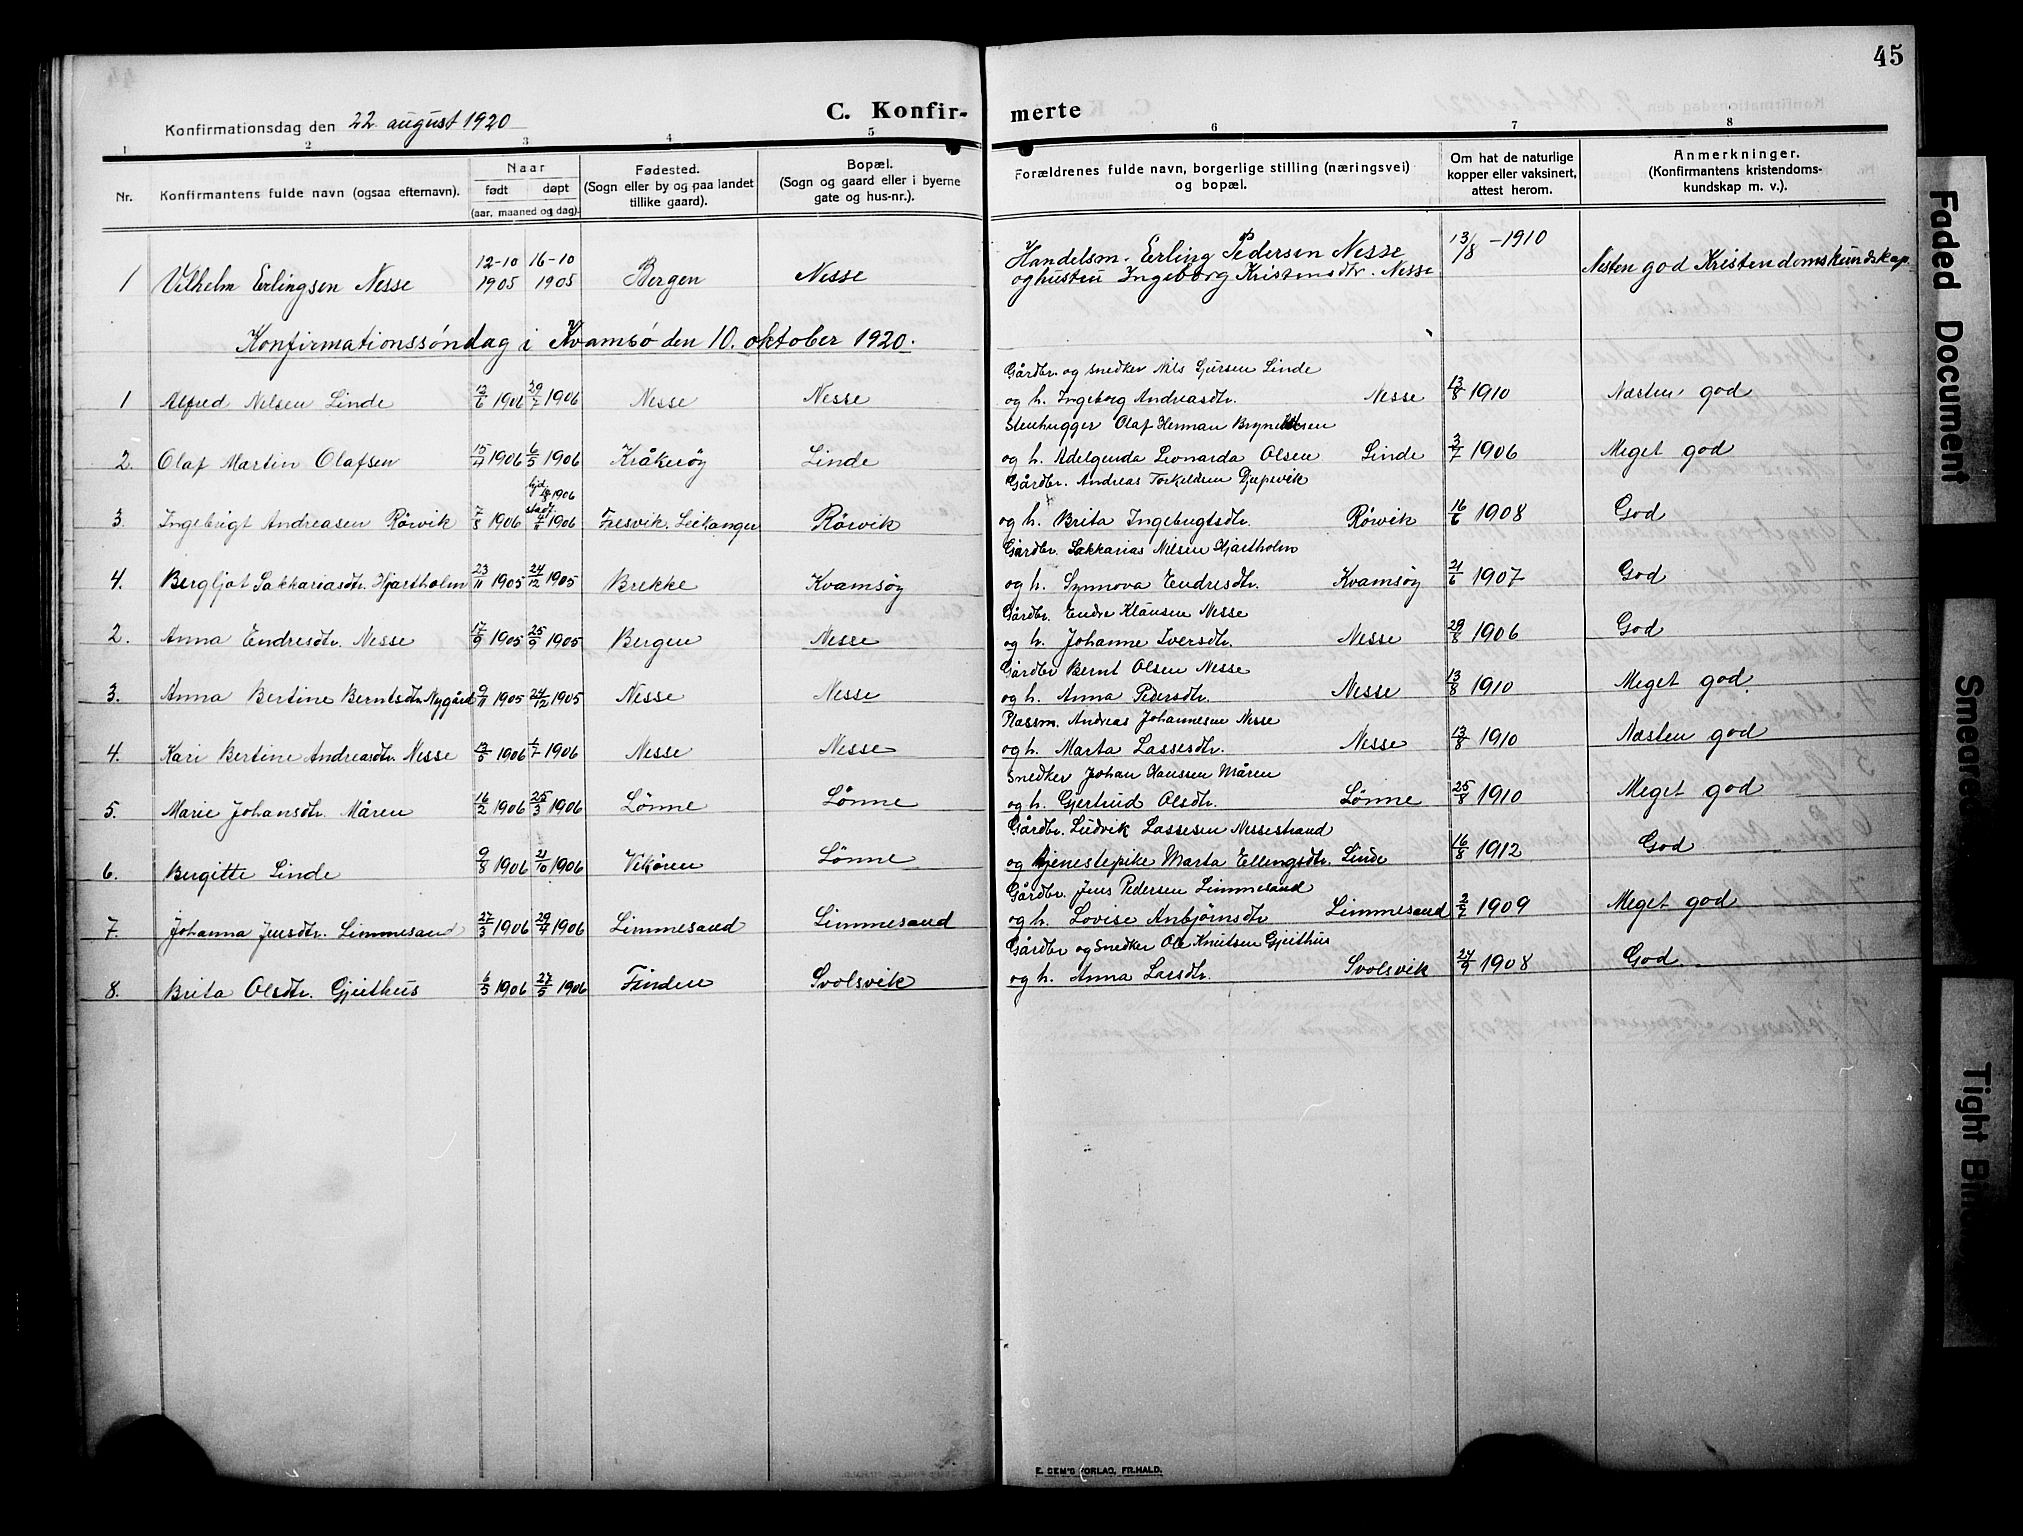 45
Konfirmationsdag den 22 august 1920
C. Konfir- merte
1 2 3 4 5 6 7 8
Nr.
Konfirmantens fulde navn (ogsaa efternavn).
Naar
født døpt
(aar, maaned og dag).
Fødested.
(Sogn eller by og paa landet
tillike gaard).
Bopæl.
(Sogn og gaard eller i byerne
gate og hus-nr.).
Forældrenes fulde navn, borgerlige stilling (næringsvei)
og bopæl.
Om hat de naturlige
kopper eller vaksinert,
attest herom.
Anmerkninger.
(Konfirmantens kristendoms-
kundskap m. v.).
Handelsm. Erling Pedersen Nesse
1 Vilhelm Erlingsen Nesse 12-10 1905 16-10 1905 Bergen Nesse og hustru Ingeborg Kristensdtr. Nesse 13/8 - 1910 Nesten god Kristendomskundskap
Konfirmationssøndag i Kvamsø den 10. oktober 1920.
Gårdbr. og snedker Nils Sjursen Linde
1 Alfred Nilsen Linde 12/6 1906 29/7 1906 Nesse Nesse og h. Ingeborg Andreasdtr. Nesse 13/8 1910 Næsten god
Stenhugger Olaf Herman Brynildsen
2. Olaf Martin Olafsen 15/4 1906 6/5 1906 Kråkerøy Linde og h. Adelgunda Leonarda Olsen Linde 3/7 1906 Meget god
Gårdbr. Andreas Torkeldsen Djupevik
3. Ingebrigt Andreasen Rørvik 1906 hjd. 1906 stadf. 1906 Fresvik. Leikanger Rørvik og h. Brita Ingebrigtsdtr. Rørvik 16/6 1908 God
Gårdbr. Sakkarias Nilsen Hjartholm
4. Bergljot Sakkariasdtr. Hjartholm 23/11 1905 24/12 1905 Brekke Kvamsøy og h. Synnøva Endresdtr. Kvamsøy 21/6 1907 God
Gårdbr. Endre Klausen Nesse
2. Anna Endresdtr. Nesse 17/9 1905 25/9 1905 Bergen Nesse og h. Johanne Iversdtr. Nesse 29/8 1906 God
Gårdbr Bernt Olsen Nesse
3. Anna Bertine Berntsdtr. Nygård 9/11 1905 24/12 1905 Nesse Nesse og h. Anna Pedersdtr. Nesse 13/8 1910 Meget god.
Plassm. Andreas Johannesen Nesse
4. Kari Bertine Andreasdtr. Nesse 1906 1/7 1906 Nesse Nesse og h. Marta Lassesdtr. Nesse 13/8 1910 Næsten god
Snedker Johan Hanssen Måren
5. Marie Johansdtr. Måren 16/2 1906 25/3 1906 Lønne Lønne og h. Gjertrud Olsdtr. Lønne 25/8 1910 Meget god
Gårdbr. Ludvik Lassesen Nessestrand
6. Bergitte Linde 9/8 1906 21/10 1906 Vikøren Lønne og tjenestepike Marta Ellingsdtr. Linde 16/8 1912 God
Gårdbr. Jens Pedersen Limmesand
7. Johanna Jensdtr. Limmesand 27/3 1906 29/4 1906 Limmesand Limmesand og h. Lovise Anbjørnsdtr Limmesand 2/7 1909 Meget god
Gårdbr og Snedker Ole Knutsen Gjeithus
8. Brita Olsdtr. Gjeithus 6/5 1906 27/5 1906 Finden Svolsvik og h. Anna Larsdtr. Svolsvik 24/9 1908 God.
E. SEM'S FORLAG, FR.HALD.
Faded Document
Smeared
Tight